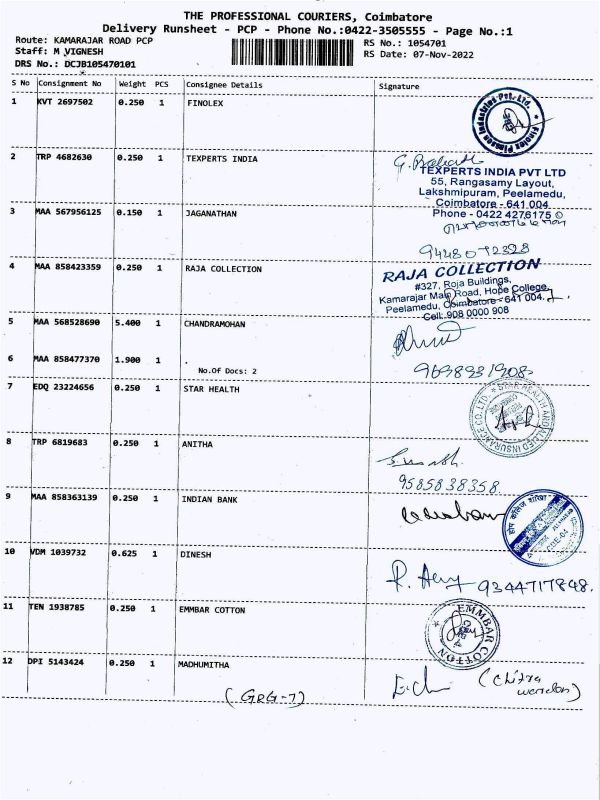 THE PROFESSIONAL COURIERS, Coimbatore
Delivery Runsheet - PCP - Phone No.:0422-3505555 - Page No.:1
Route: KAMARAJAR ROAD PCP
Staff: M VIGNESH
DRS No.: DCJB105470101
RS No.: 1054701
RS Date: 07-Nov-2022
S No Consignment No Weight PCS Consignee Details Signature
1 KVT 2697502 0.250 1 FINOLEX
2 TRP 4682630 0.250 1 TEXPERTS INDIA
TEXPERTS INDIA PVT LTD
55, Rangasamy Layout,
Lakshmipuram, Peelamedu,
Coimbatore - 641 004
Phone - 0422 4276175
3 MAA 567956125 0.150 1 JAGANATHAN
4 MAA 858423359 0.250 1 RAJA COLLECTION
RAJA COLLECTION
#327, Roja Buildings,
Kamarajar Main Road, Hope College,
Peelamedu, Coimbatore - 641 004.
Cell: 908 0000 908
5 MAA 568528690 5.400 1 CHANDRAMOHAN
6 MAA 858477370 1.900 1 .
No.Of Docs: 2
7 EDQ 23224656 0.250 1 STAR HEALTH
STAR HEALTH AND ALLIED INSURANCE CO. LTD.
8 TRP 6819683 0.250 1 ANITHA
9585838358
9 MAA 858363139 0.250 1 INDIAN BANK
10 VDM 1039732 0.625 1 DINESH
9344717848.
11 TEN 1938785 0.250 1 EMMBAR COTTON
EMMBAR COTTON
12 DPI 5143424 0.250 1 MADHUMITHA
(GRG-7)
(Chitra
warden)